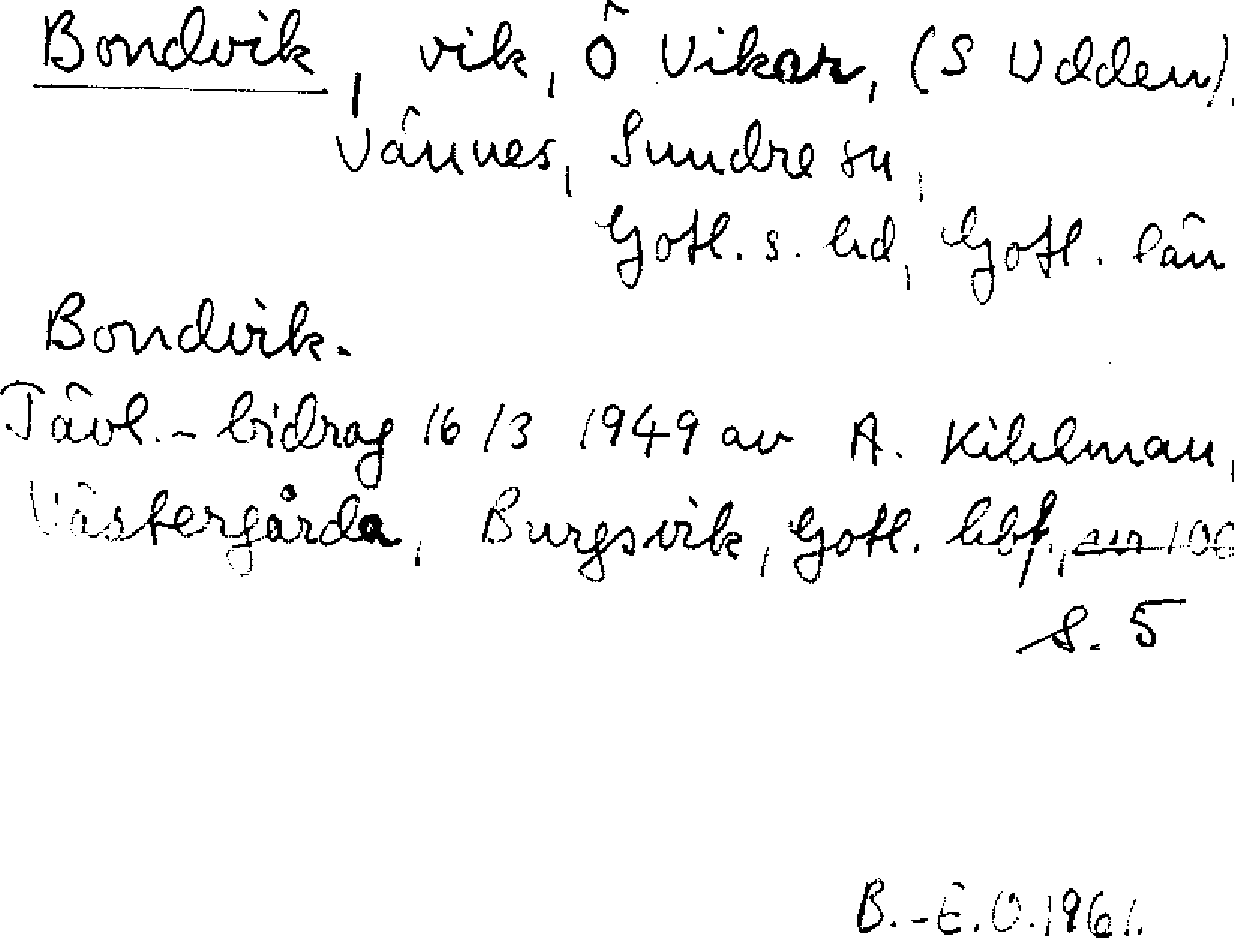 Bondvik, vik, Ö Vikar, (S Udden),
Vännes, Sundre sn,
Gotl. s. hd, Gotl. län
Bondvik.
Tävl.- bidrag 16/3 1949 av A. Kihlman,
Västergårda, Burgsvik, Gotl. hbf.,
s. 5
B.-E.O. 1961.